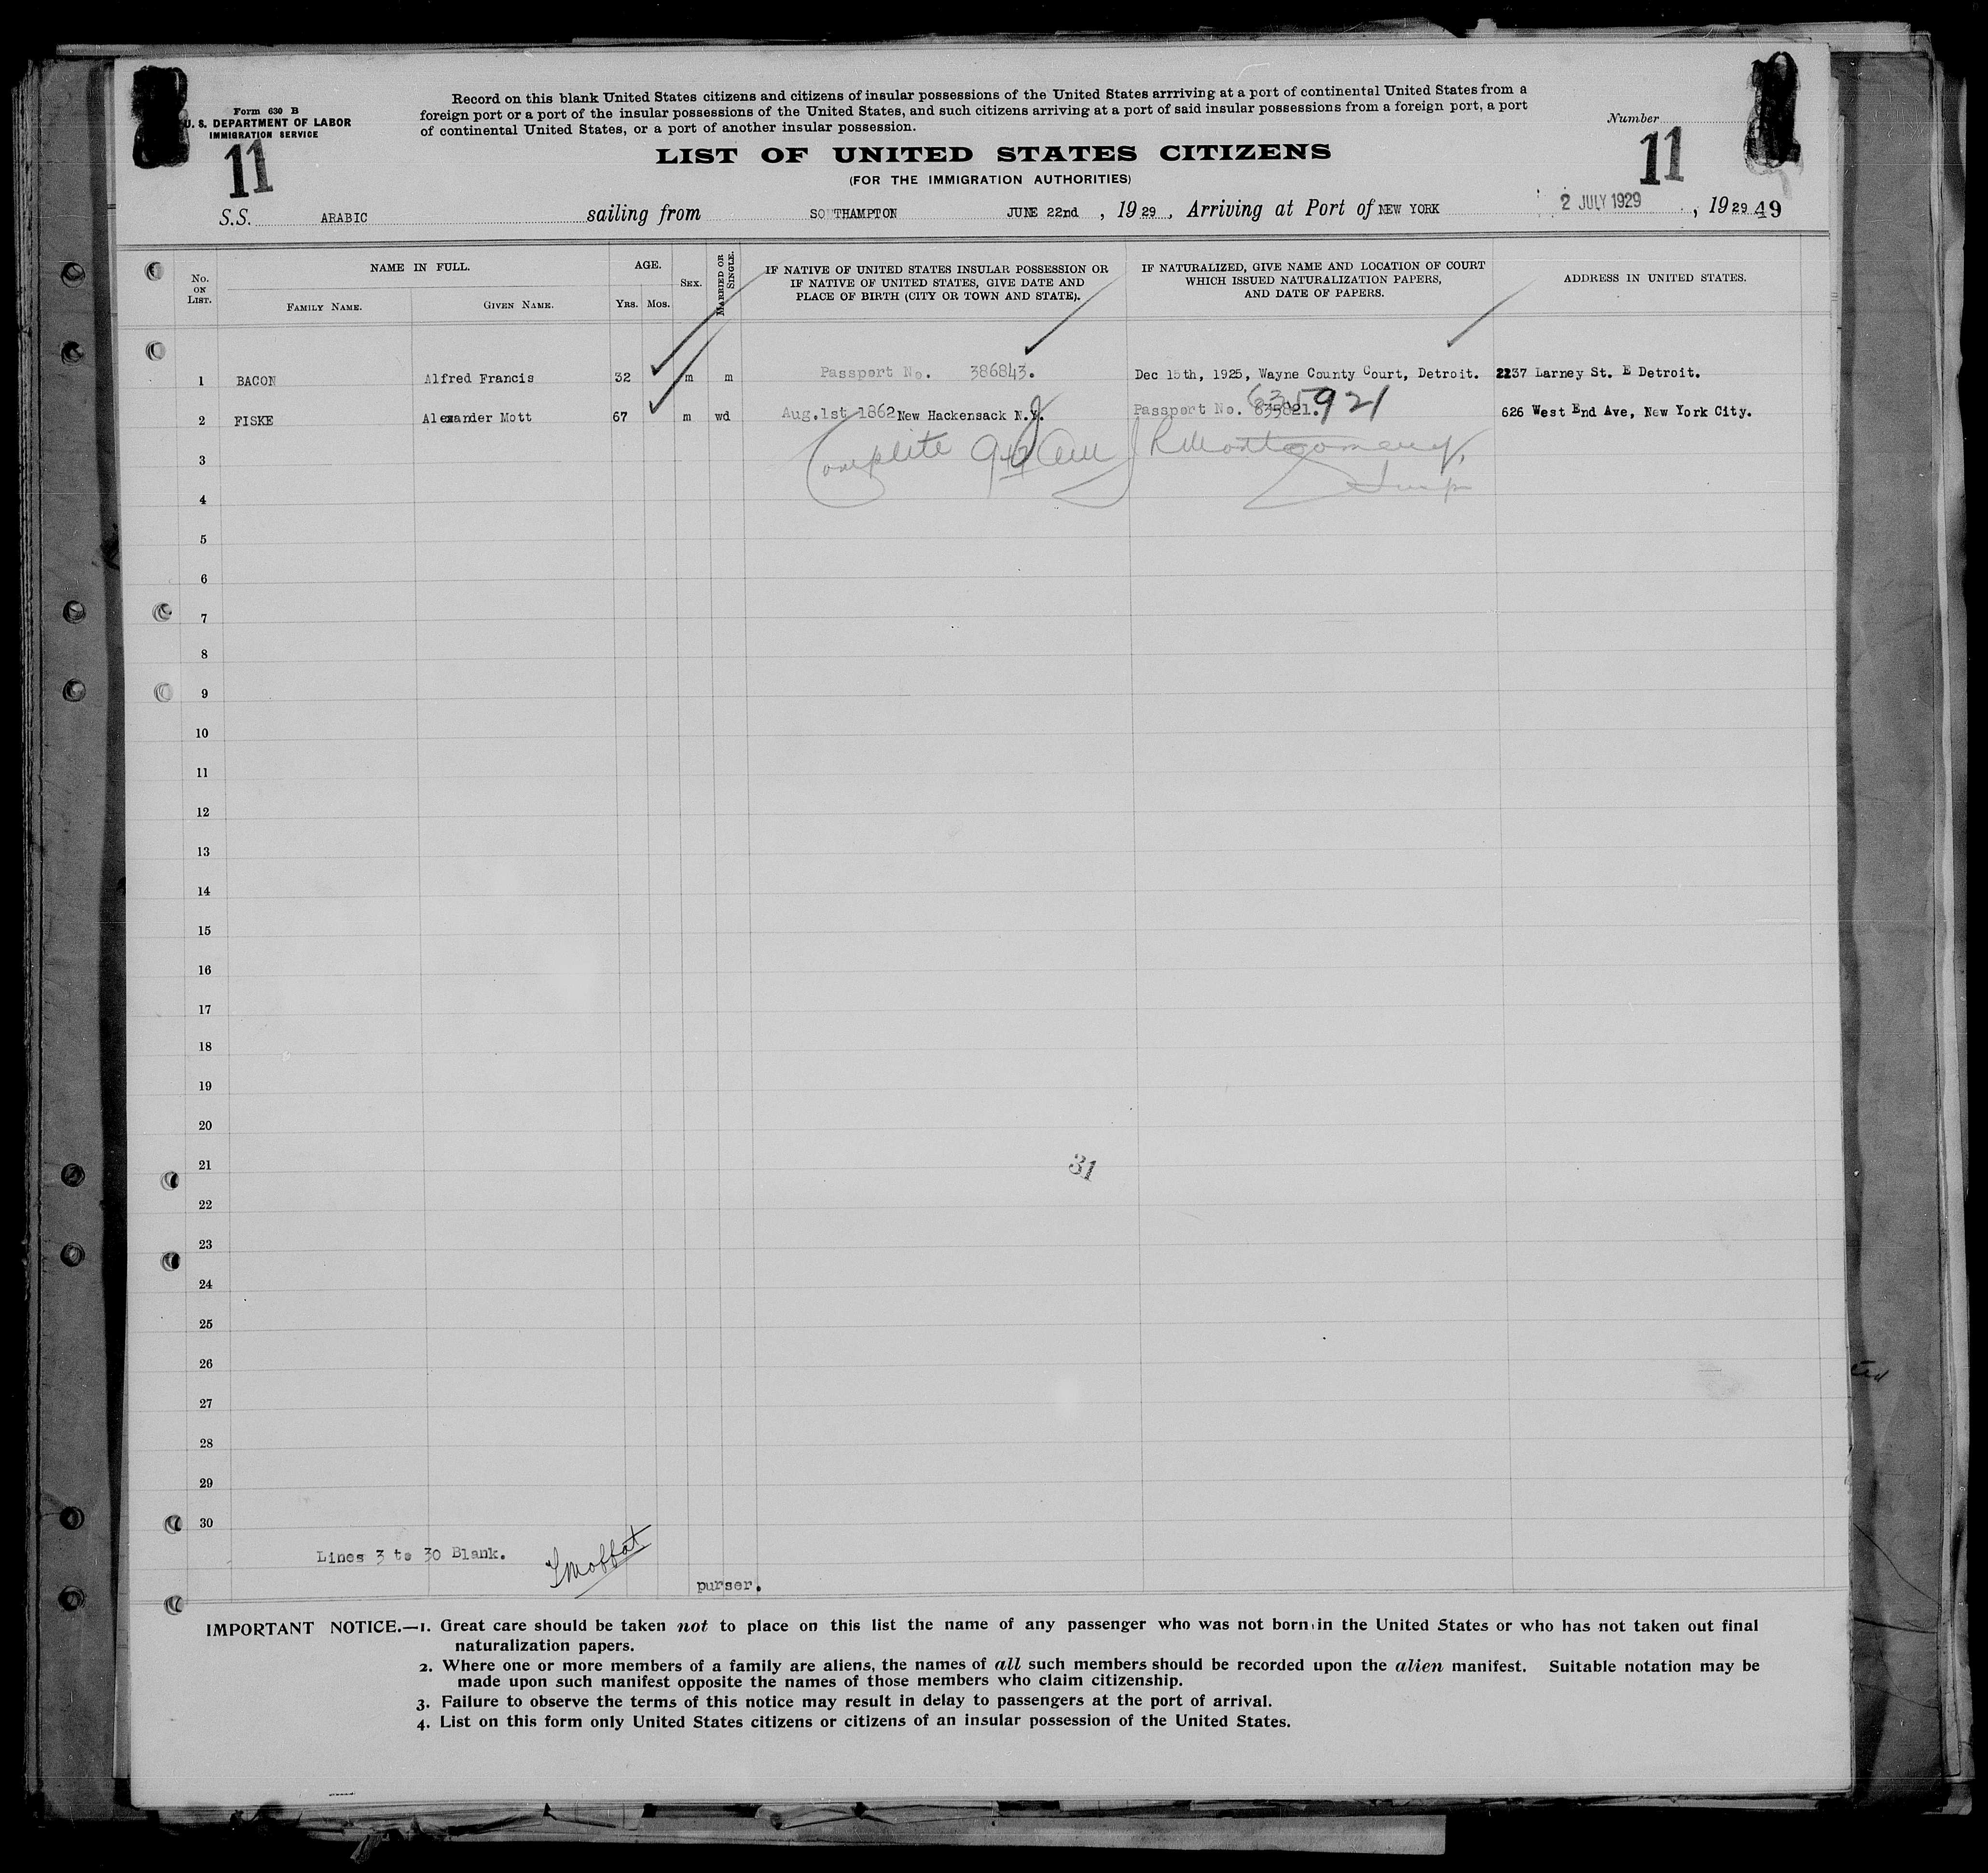 Form 630 B
U. S. DEPARTMENT OF LABOR
IMMIGRATION SERVICE
11
Record on this blank United States citizens and citizens of insular possessions of the United States arrriving at a port of continental United States from a
foreign port or a port of the insular possessions of the United States, and such citizens arriving at a port of said insular possessions from a foreign port, a port
of continental United States, or a port of another insular possession.
Number
11
LIST OF UNITED STATES CITIZENS
(FOR THE IMMIGRATION AUTHORITIES)
S.S. ARABIC sailing from SOUTHAMPTON JUNE 22nd , 19 29 , Arriving at Port of NEW YORK 2 JULY 1929 , 19 29 49
No. ON LIST.
NAME IN FULL.
FAMILY NAME.
GIVEN NAME.
AGE.
YRS. MOS.
SEX.
MARRIED OR SINGLE.
IF NATIVE OF UNITED STATES INSULAR POSSESSION OR
IF NATIVE OF UNITED STATES, GIVE DATE AND
PLACE OF BIRTH (CITY OR TOWN AND STATE).
IF NATURALIZED, GIVE NAME AND LOCATION OF COURT
WHICH ISSUED NATURALIZATION PAPERS,
AND DATE OF PAPERS.
ADDRESS IN UNITED STATES.
1 BACON Alfred Francis 32 m m Passport No. 386843. Dec 15th, 1925, Wayne County Court, Detroit. 2237 Larney St. E Detroit.
2 FISKE Alexander Mott 67 m wd Aug.1st 1862 New Hackensack N.Y. Passport No. 635821. 635921 626 West End Ave, New York City.
3 Complete J R Montgomery,
4 Insp
5
6
7
8
9
10
11
12
13
14
15
16
17
18
19
20
21 31
22
23
24
25
26
27
28
29
30
Lines 3 to 30 Blank. Moffat
purser.
IMPORTANT NOTICE.—1. Great care should be taken not to place on this list the name of any passenger who was not born in the United States or who has not taken out final
naturalization papers.
2. Where one or more members of a family are aliens, the names of all such members should be recorded upon the alien manifest. Suitable notation may be
made upon such manifest opposite the names of those members who claim citizenship.
3. Failure to observe the terms of this notice may result in delay to passengers at the port of arrival.
4. List on this form only United States citizens or citizens of an insular possession of the United States.